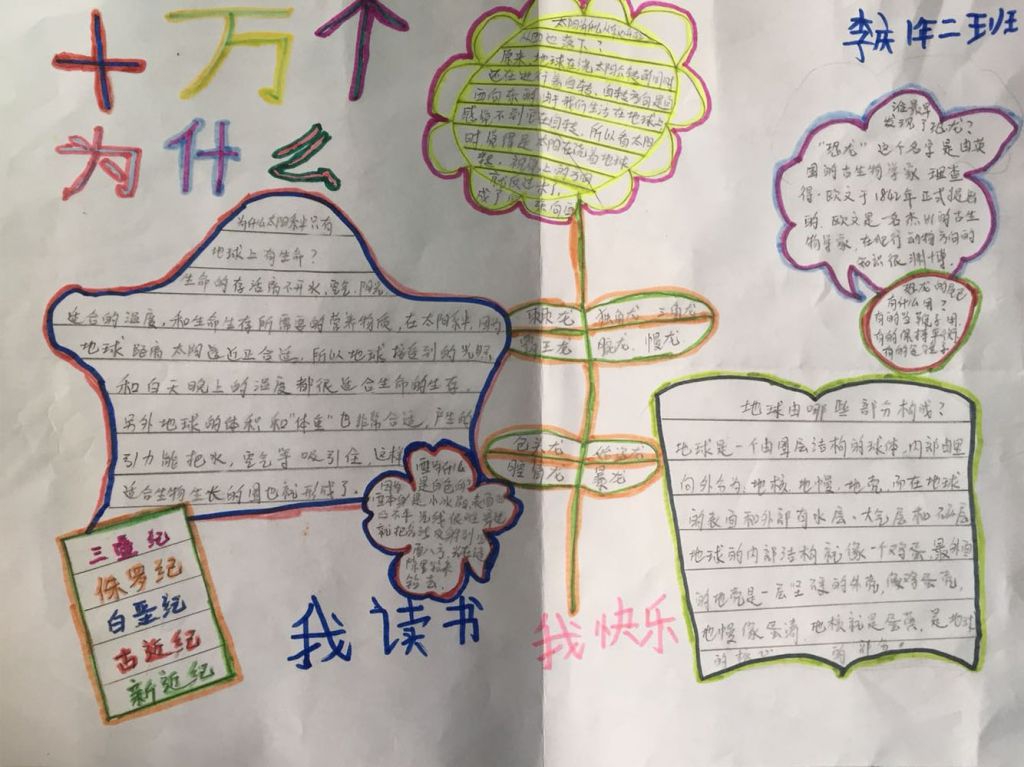 十万个
为什么
李庆 1年二班
从西边落下?
原来,地球在绕太阳公转的同时
还在进行着自转,自转方向是自
西向东的,由于我们生活在地球上
感觉不到它在自转,所以看太阳
时觉得是太阳在绕着地球
转,
谁最早
发现了恐龙?
“恐龙”这个名字是由英
国的古生物学家理查
得·欧文于1842年正式提出
的,欧文是一名杰出的古生
物学家,在爬行动物方面的
知识很渊博。
恐龙的尾巴
有什么用?
有的当鞭子用
有的保持平衡
为什么太阳系中只有
地球上有生命?
生命的存活离不开水,空气,阳光,
适合的温度,和生命生存所需要的营养物质,在太阳系中,因为
地球距离太阳远近正合适,所以地球接受到的光照
和白天晚上的温度都很适合生命的生存,
另外地球的体积和“体重”也非常合适,产生的
引力能把水,空气等吸引住,这样
适合生物生长的圈也就形成了。
独角龙 三角龙
霸王龙
慢龙
包头龙
暴龙
地球由哪些部分构成?
地球是一个由圈层结构的球体,内部由里
向外分为:地核,地慢,地壳,而在地球
的表面和外部有水层、大气层和
地球的内部结构就像一个鸡蛋,最外面
的地壳是一层坚硬的外壳,像鸡蛋壳,
地慢像蛋清,地核就是蛋黄,是地球
三叠纪
侏罗纪
白垩纪
古近纪
新近纪
我读书
我快乐